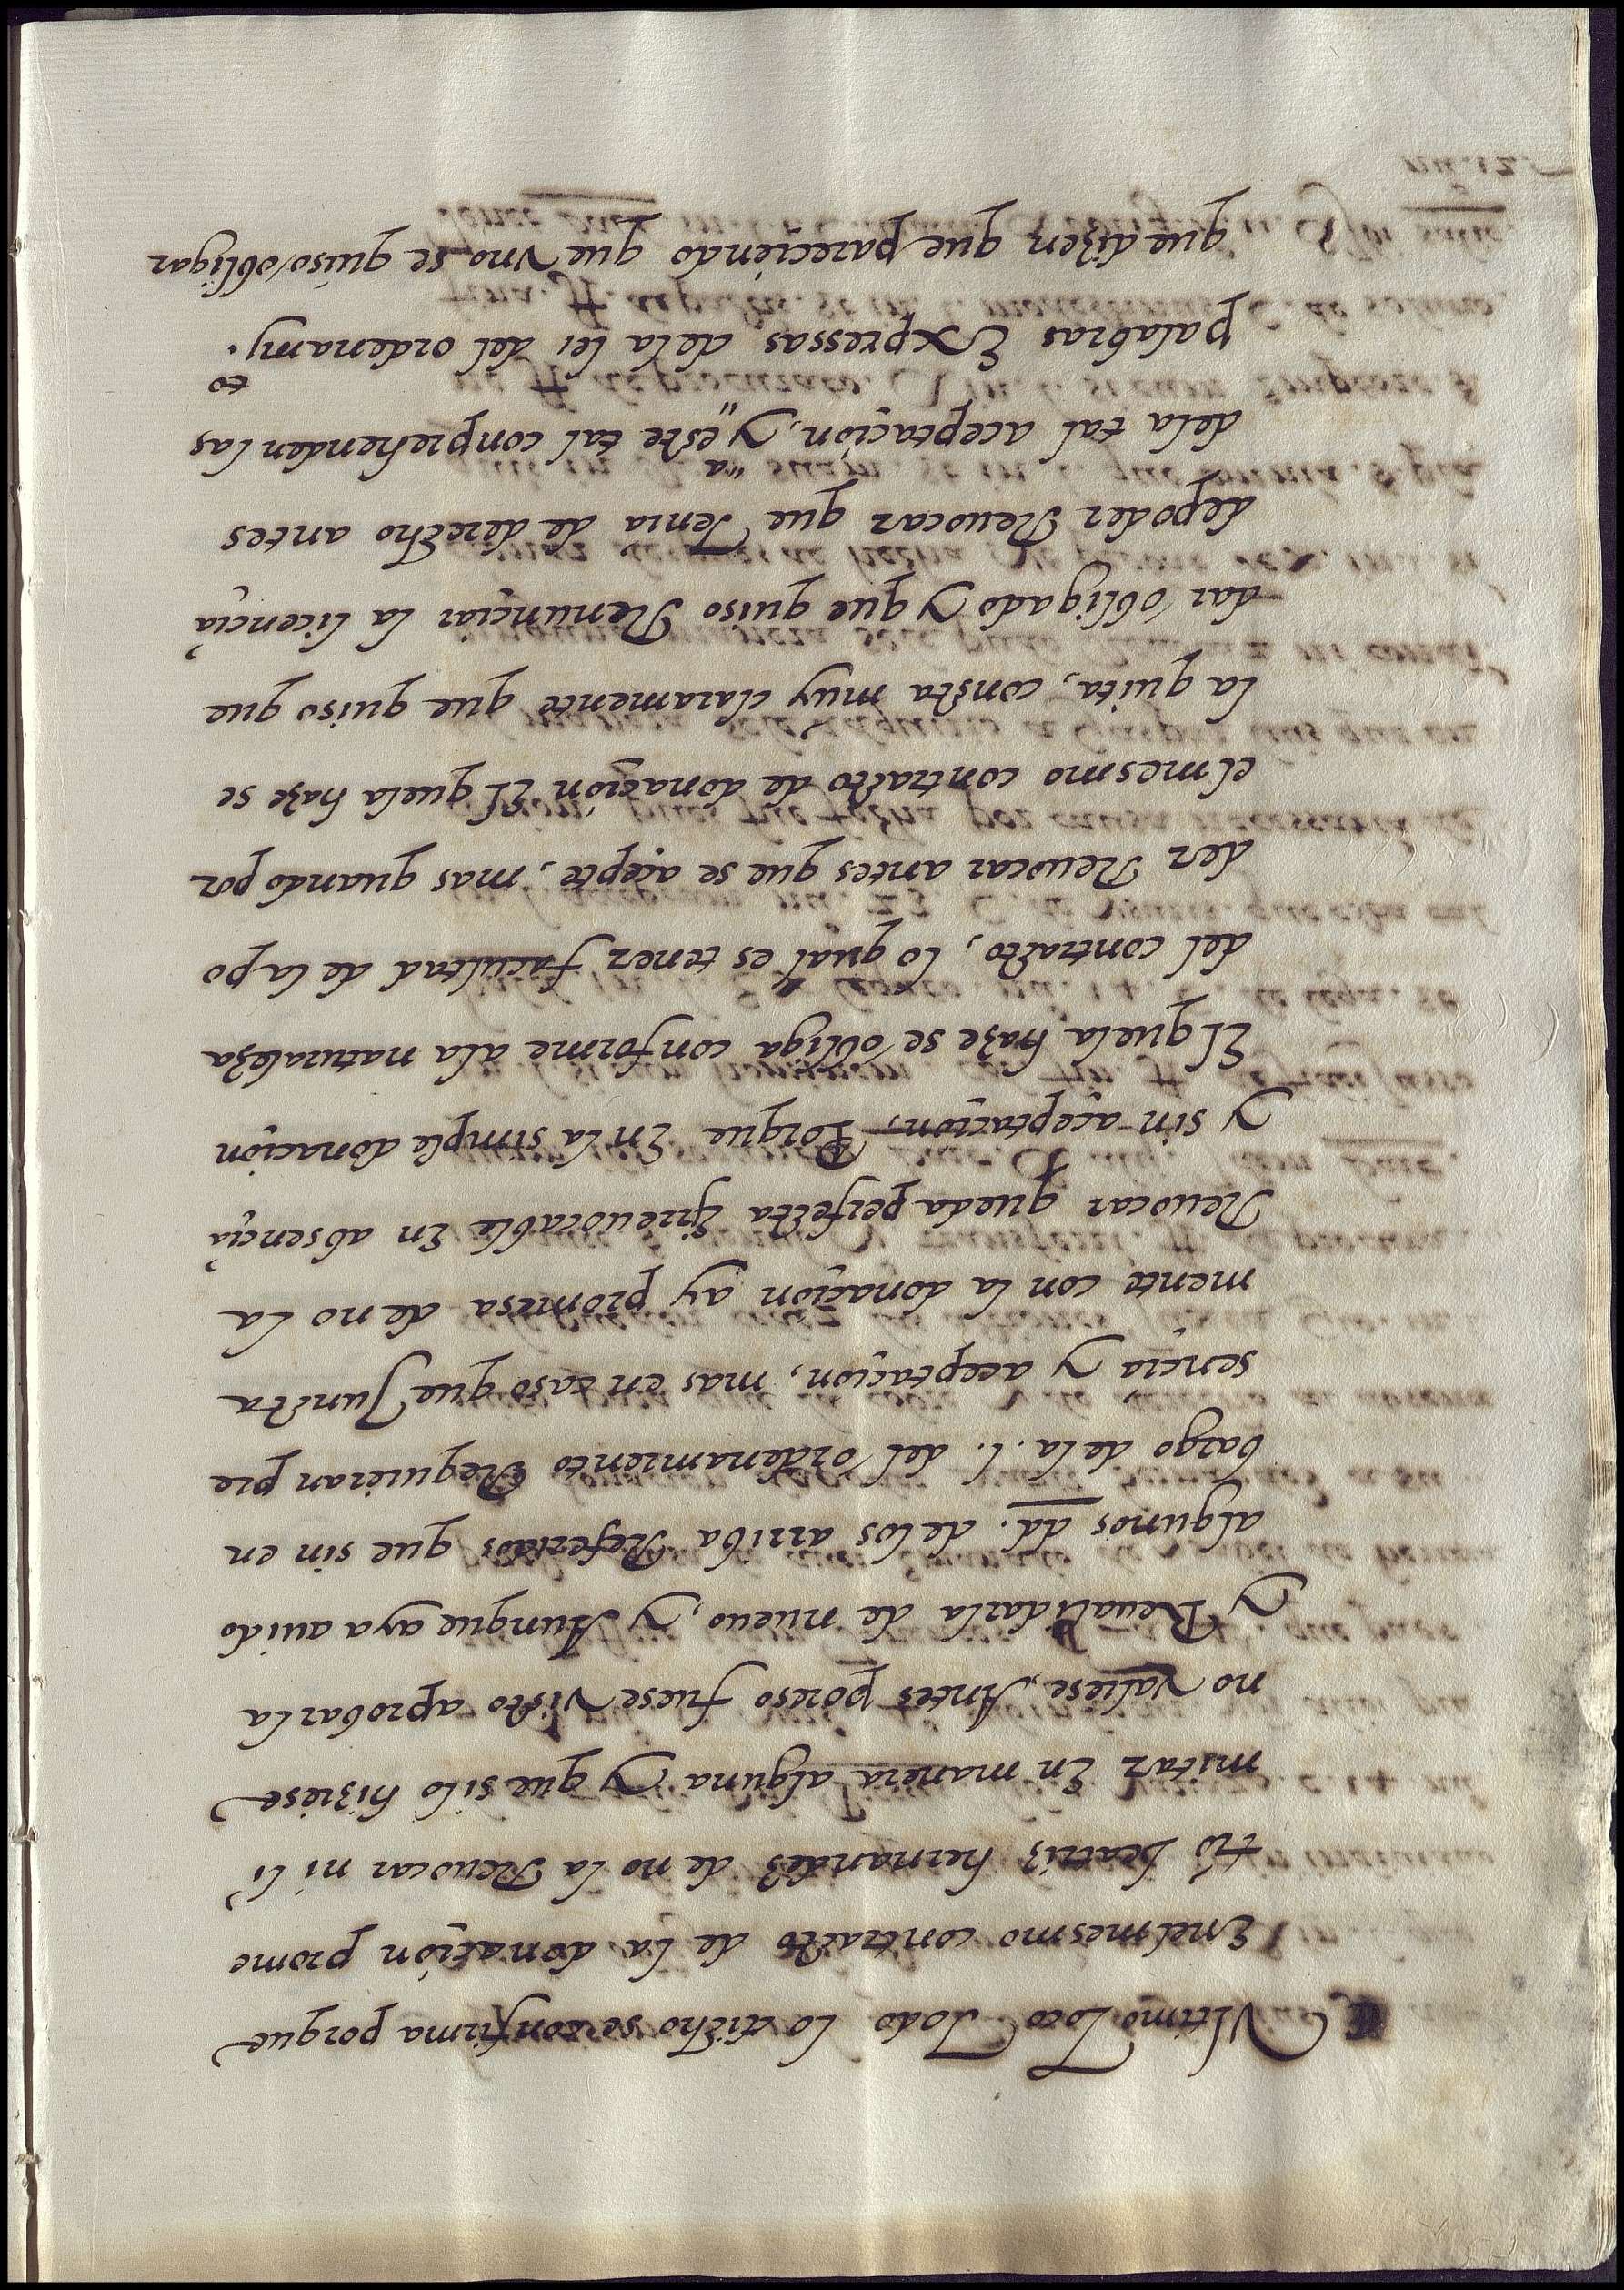 Vltimo Loco Todo lo dicho se confirma porque
Enel mesmo contracto de la donaçion prome
tio beatriz hernandez de no la Reuocar ni li
mitar En manera alguna y que silo hiziese
no valiese, Antes poreso fuese visto aprobarla
y Reualidarla de nueuo, y Aunque aya auido
algunos dd. delos arriba Referidos que sin en
bargo dela .l. del ordenamiento Requieran pre
sencia y aceptaçion, mas en caso que Juncta
mente con la donaçion ay promesa de no la
Reuocar queda perfecta Irreuocable En absençia
y sin açeptaçion, Porque En la simple donaçion
El quela haze se obliga conforme ala naturaleza
del contracto, lo qual es tener facultad de la po
der Reuocar antes que se açepte, mas quando por
el mesmo contracto de donaçion El quela haze se
la quita, consta muy claramente que quiso que
dar obligado y que quiso Renunçiar la liçençia
depoder Reuocar que Tenia de derecho antes
dela tal aceptaçion, y a este tal conprehenden las
palabras Expressas dela lei del ordenamyto.
que dizen que pareçiendo que vno se quiso obligar